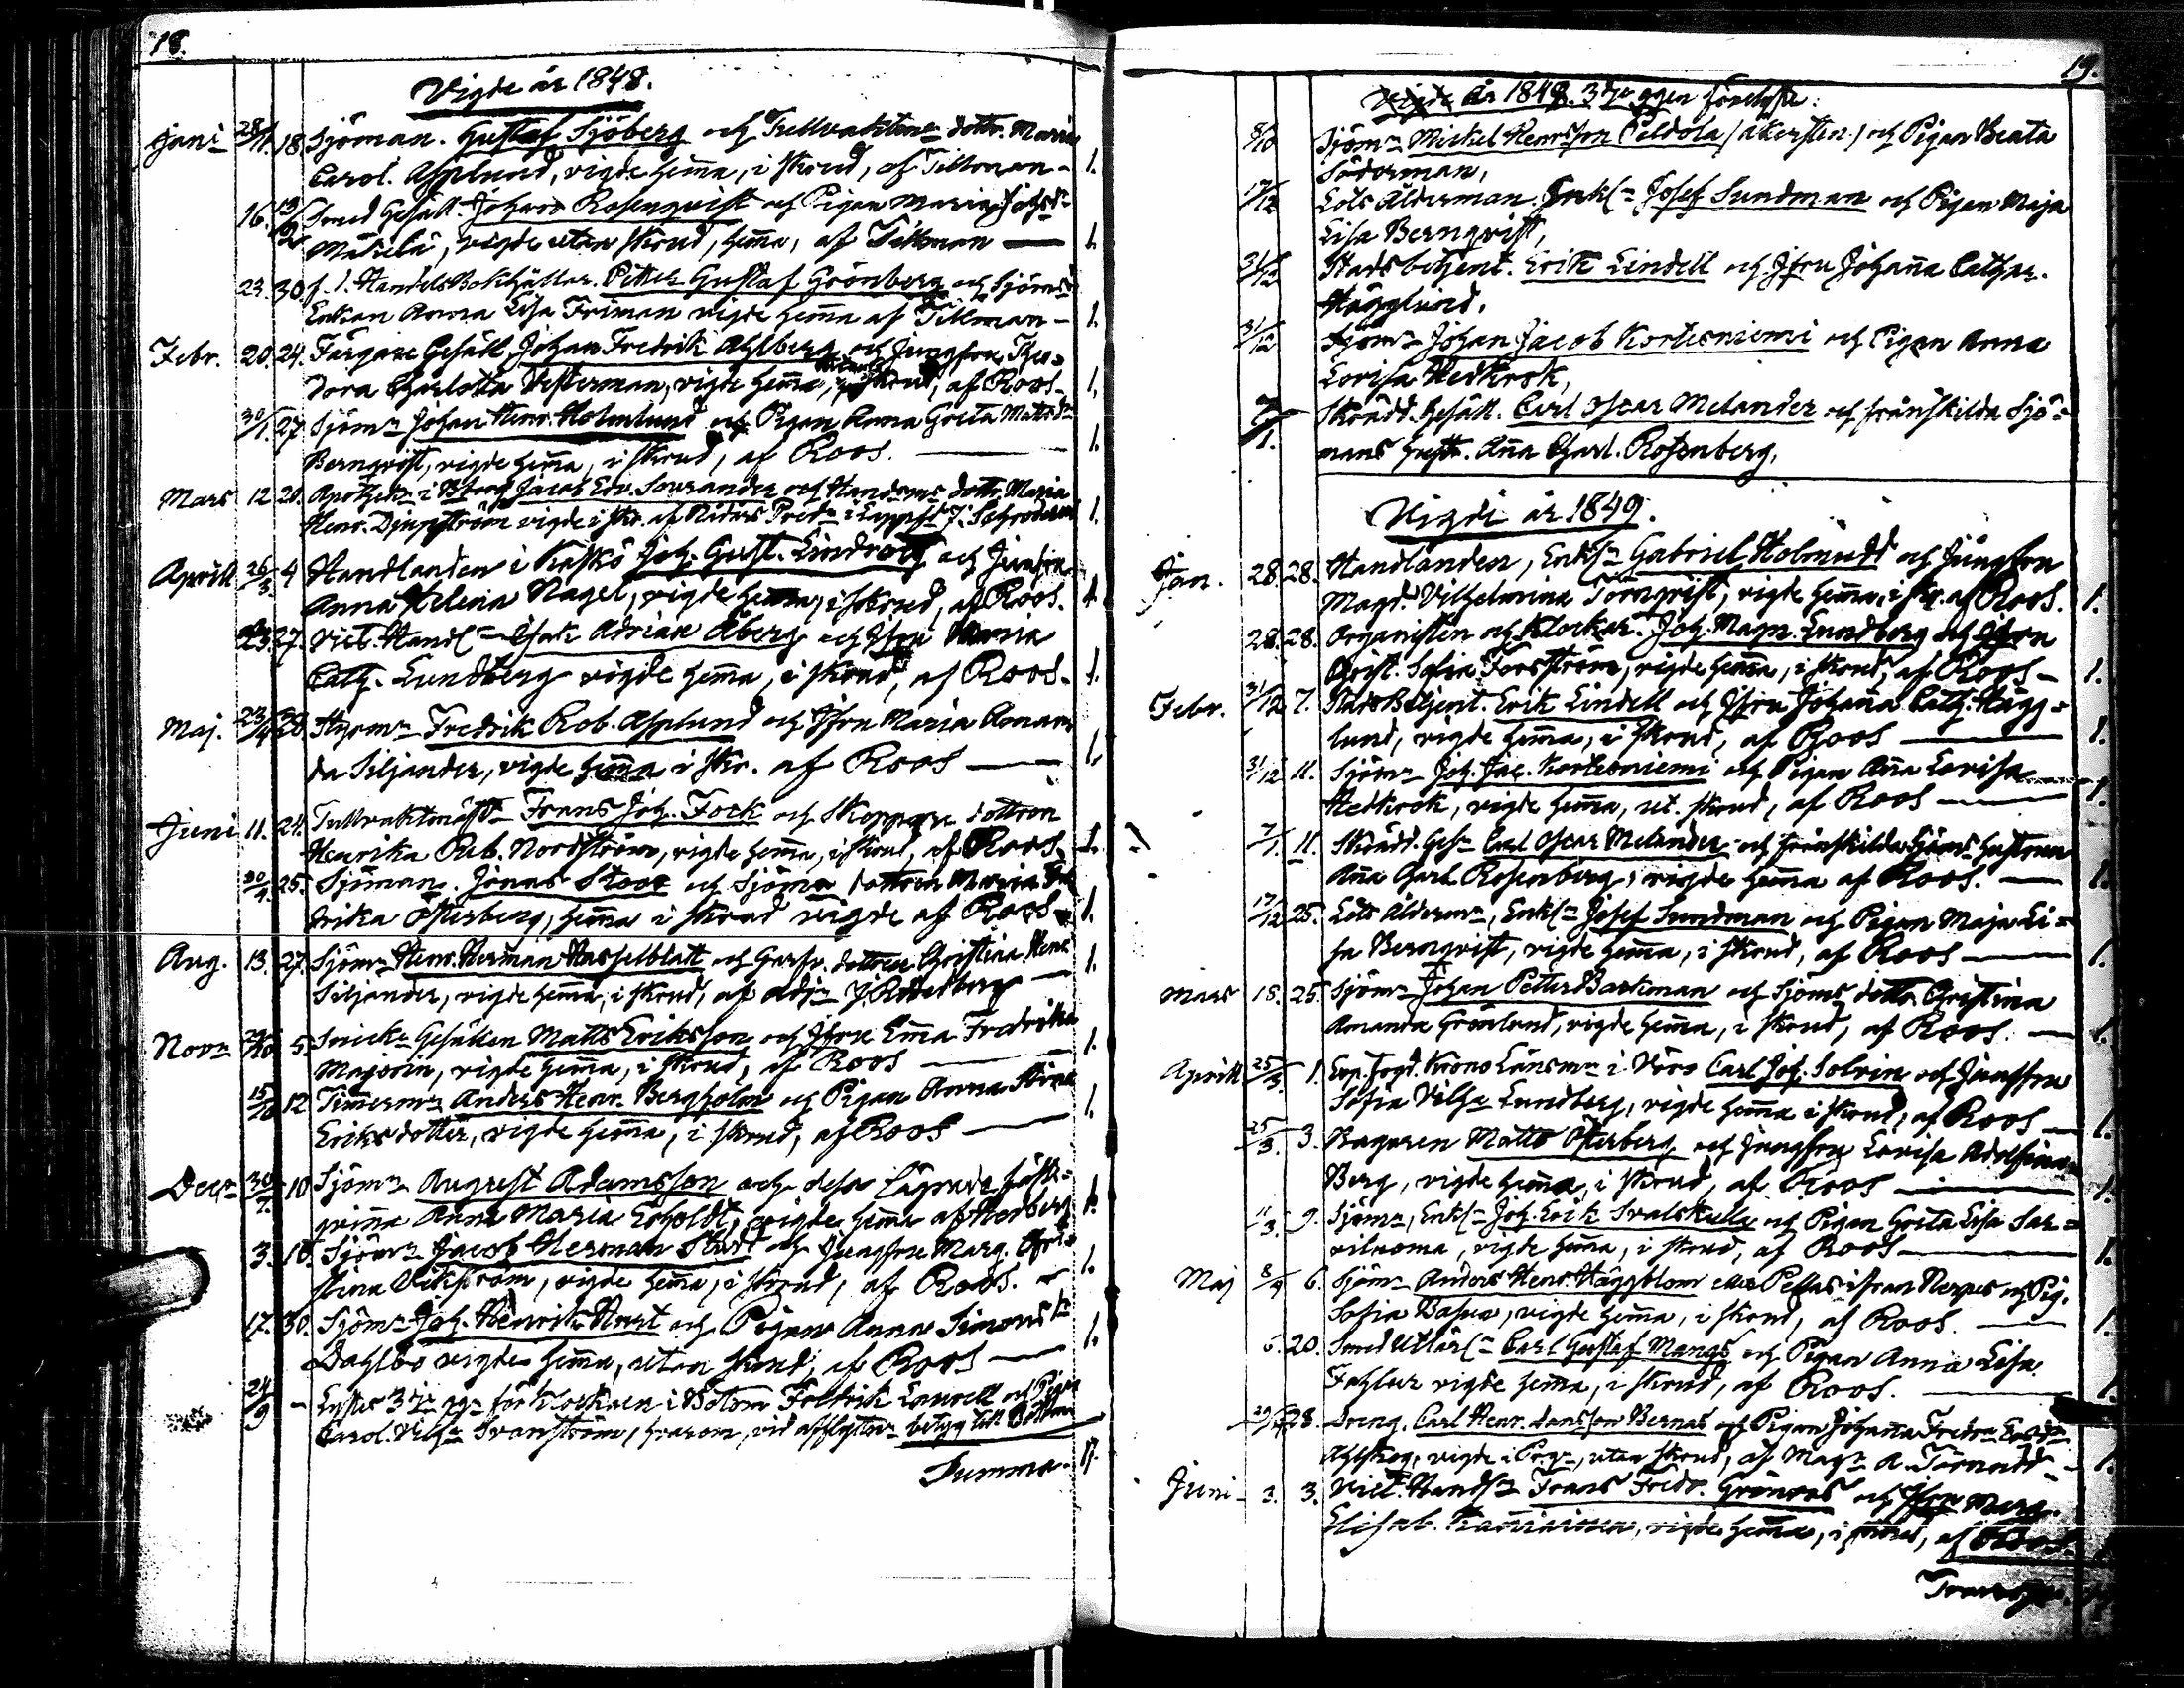 18.
Vigde år 1848.
Jani 28/11. 18. Sjöman. Gustaf Sjöberg och Tullvaktms dottr. Maria
Carol. Asplund, vigde hema, i skrud, af Tikkanen - 1.
16. 13/2 Smed Gesäll. Johan Rosenqvist och Pigan Maria Johsdr
Mäkelä, vigde utan skrud, hema, af — 1.
23. 30. f. d. Handels Bokhållar. Petter Gustaf Grönberg och Sjöms
Enkan Anna Lisa Friman vigde hema af - 1.
Febr. 20. 24. Färgare Gesäll Johan Fredrik Ahlberg och Jungfru Theo-
dora Charlotta Vesterman, vigde hema, skrud, af Roos - 1.
30/1. 27. Sjömn Johan Henr. Holmlund och Pigan Anna Greta Matsdr
Bernqvist, vigde hema, i skrud, af Roos. — 1.
Mars 12 20. Apothek. i Jacob Edv. Sourander och Handsms dottr. Maria
Henr. vigde i skr. af 1.
Aprill 26/3 4 Handlanden i Kaskö Joh. Gust. Lindroos och Jungfru
Anna Helena Nagel, vigde hema, i skrud, af Roos. 1.
23 27. Vict. Handl. Isak Adrian Åberg och Jfru Maria
Cath. Lundberg vigde hema, i skrud, af Roos - 1.
Maj. 23/4 28 Sjömn Fredrik Rob. Asplund och Jfru Maria Aman-
da Siljander, vigde hema i skr. af Roos — 1.
Juni 11. 24. Tullvaktmäst. Frans Joh. Fock och Skeppare dottren
Henrika Nordström, vigde hema, i skrud, af Roos - 1.
30/4. 25. Sjöman. Jonas Stoor och Sjöms dottren Maria
drika Österberg, hema i skrud vigde af Roos 1.
Aug. 13. 27. Sjömn Henr. Herman Hasselblatt och Garfv. dottren Christina Henr
Siljander, vigde hema, i skrud, af — 1.
Novr 29/10 5. Snick. Gesällen Matts Eriksson och Jfru Ema Fredrika
Majorin, vigde hema, i skrud, af Roos — 1.
15/10 12 Timermn Anders Henr. Bergholm och Pigan Anna Stina
Eriksdotter, vigde hema, i skrud, af Roos — 1.
Decr 30/7. 10. Sjömn August Adamsson och dess Lägrade fäste-
qvinna Anna Maria vigde hema af 1.
3. 10. Sjömn Jacob Herman och Jungfru Marg. Chri-
stina Vikström, vigde hema, i skrud, af Roos. - 1.
17. 30. Sjömn Joh. Henrik och Pigan Anna Simonsdr
Dahlbo vigde hema, utan skrud, af Roos — 1.
24/9 - Lystes 3dje gn för Klockaren i Bötom Fredrik och Pigan
Carol. Vilha Svanström, hvarom, vid afflyttn. betyg till Bötom
Summa. 17.
19.
Vigde år 1848. 3dje ggen förelyste.
8/10 Sjömn Mickel Henrsson Peldola (Åkersten) och Pigan Beata
Söderman,
17/12 Lots Ålderman. Enkl. Josef Sundman och Pigan Maja
Lisa Bernqvist,
31/12 Stadsbetjent. Erik Lindell och Jfru Johana Cathar.
Hägglund.
31/12 Sjömn Johan Jacob Kortesniemi och Pigan Anna
Lovisa Hedkrok,
7/1. Skrädd. Gesäll. Carl Oscar Melander och frånskilda Sjö-
mans hustr. Ana Charl. Rosenberg.
Vigde år 1849.
Jan. 28. 28. Handlanden, Enkl. Gabriel Holmudd och Jungfru
Magd. Vilhelmina Törnqvist, vigde hema, i skr. af Roos. 1.
28. 28. Organisten och Klockar. Joh. Magn. Lundberg och Jfru
Christ. Sofia Forsström, vigde hema, i skrud, af Roos - 1.
Febr. 31/12 7. Stads Betjent. Erik Lindell och Jfru Johana Cath. Hägg-
lund, vigde hema, i skrud, af Roos — 1.
31/12 11. Sjömn Joh. Jac. Kortesniemi och Pigan Ana Lovisa
Hedkrok, vigde hema, ut. skrud, af Roos — 1.
7/1. 11. Skrädd. Ges. Carl Oscar Melander och frånskilda Sjöms hustrun
Ana Charl. Rosenberg, vigde hema af Roos. — 1.
17/12 25. Lots Ålderm., Enkl. Josef Sundman och Pigan Maja Li-
sa Bernqvist, vigde hema, i skrud, af Roos — 1.
Mars 18. 25. Sjömn Johan Petter Backman och Sjöms dottr. Christina
Amanda Grönlund, vigde hema, i skrud, af Roos. — 1.
Aprill 25/3 1. Krono Länsmn i Vörå Carl Joh. Solvin och Jungfru
Sofia Vilha Lundberg, vigde hema i skrud, af Roos — 1.
25/3. 3. Bagaren Matts Österberg och Jungfru Lovisa Adolfina
Berg, vigde hema, i skrud, af Roos — 1.
11/3. 9. Sjömn, Enkl. Joh. Erik Svalskulla och Pigan Greta Lisa Sar-
viluoma, vigde hema, i skrud, af Roos — 1.
Maj 8/4 6. Sjömn Anders Henr. Häggblom eller Pellas ifran Nerpes och Pig.
Sofia vigde hema, i skrud, af Roos. — 1.
6. 20. Smed Carl Gustaf Mangs och Pigan Anna Lisa
Fahler vigde hema, i skrud, af Roos. — 1.
28. Dreng. Carl Henr. Bernas och Pigan Johana Fredr.
Ahlskog, vigde i utan skrud, af Mag. A. Törnudd - 1.
Juni - 3. 3. Vict. Handl. Frans Fredr. Grönroos och Jfru Marg.
Elisab. vigde hema, i skrud, af Roos 1.